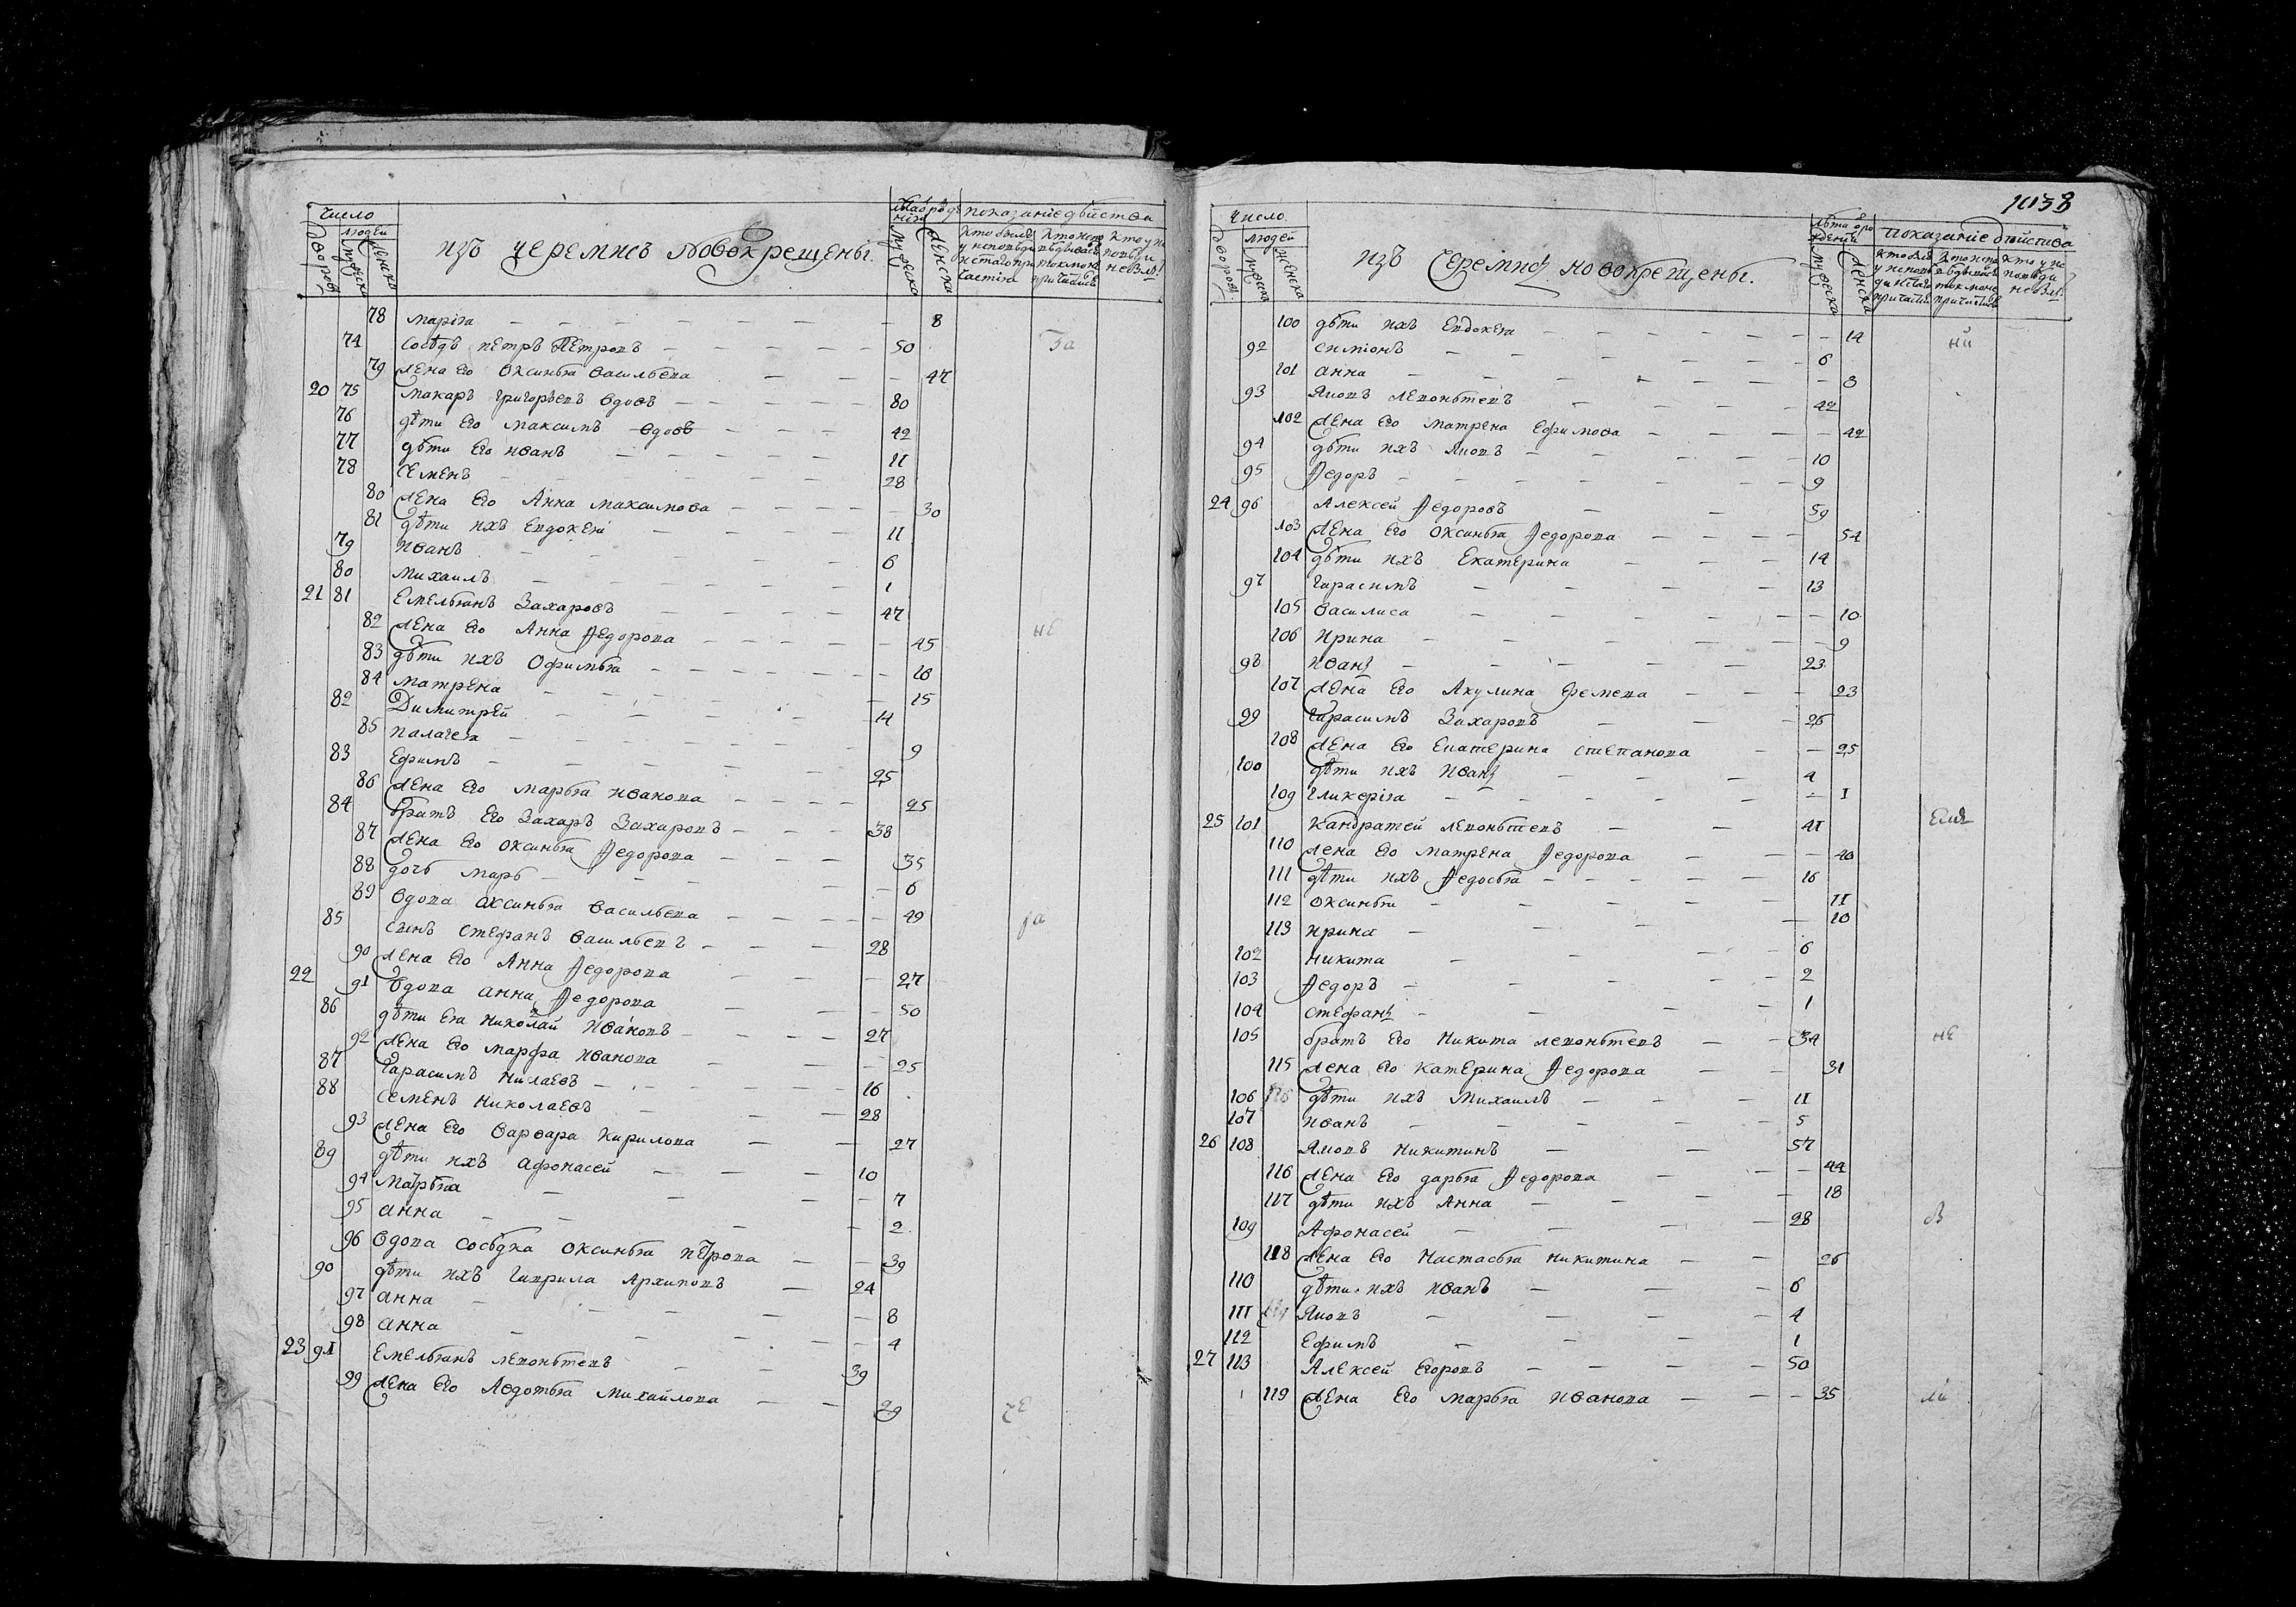 Число
Людей
Дворовъ
Мужеска
Женска
изъ черемисъ новокрещены.
показание действа
78 мария — 8
74 Сосѣдъ пЕтръ пЕтровъ — 50
79 жена Его Оксинья васильева — 47
20 75 макаръ григорьевъ вдовъ — 80
76 дѣти Его максимъ вдовъ — 42
77 дѣти Его иванъ — 11
78 СЕмЕнъ — 28
80 жЕна Его Анна максимова — 30
81 дѣти ихъ Евдокеи — 11
79 иванъ — 6
80 михаилъ — 1
21 81 ЕмЕльянъ Захаровъ — 47
82 жЕна Его Анна Федорова — 45
не
83 дѣти ихъ Офимья — 18
84 матрЕна — 15
82 Димитрей — 14
85 палагея — 9
83 Ефимъ — 25
86 жЕна Его марья иванова — 25
84 братъ Его Захаръ Захаровъ — 38
87 жЕна Его Оксинья Федорова — 35
88 дочь марь — 6
89 вдова аксинья васильева — 49
85 сынъ стЕфанъ васильевъ — 28
90 жЕна Его Анна Федорова — 27
22 91 вдова анна Федорова — 50
86 дѣти Ея николай ивановъ — 27
92 жЕна Его марфа иванова — 25
87 Гарасимъ нилаевъ — 16
88 сЕмЕнъ николаевъ — 28
93 жЕна Его варвара кирилова — 27
89 дѣти ихъ афонасей — 10
94 марья — 7
95 анна — 2
96 вдова сосѣдка оксинья пЕтрова — 39
90 дѣти ихъ гаврила архиповъ — 24
97 анна — 8
98 анна — 4
23 91 ЕмЕльянъ лЕвоньтевъ — 39
99 жЕна Его Авдотья михайлова — 29
1038
Число
Людей
Дворовъ
Мужеска
Женска
изъ черемисъ новокрещены.
показание действа
100 дѣти ихъ Евдокея — 14
ни
92 симионъ — 6
101 анна — 3
93 Яковъ лЕвоньтевъ — 42
102 жЕна Его матрена Ефимова — 42
94 дѣти ихъ Яковъ — 10
95 Федоръ — 9
24 96 Алексей Федоровъ — 59
103 жЕна Его Оксинья Федорова — 54
104 дѣти ихъ Екатерина — 14
97 Гарасимъ — 13
105 василиса — 10
106 ирина — 9
98 иванъ — 23
107 жЕна Его Акулина — 23
99 Гарасимъ Захаровъ — 26
108 жЕна Его Екатерина степанова — 25
100 дѣти ихъ иванъ — 4
109 гликерия — 1
25 101 кандратей лЕвоньтевъ — 41
110 жена Его матрена Федорова — 40
111 дѣти ихъ Федосья — 16
112 оксинья — 11
113 ирина — 10
102 никита — 6
103 Федоръ — 2
104 стефанъ — 1
105 братъ Его никита левоньтевъ — 34
не
115 жена Его катерина Федорова — 31
106 дѣти ихъ михаилъ — 11
107 иванъ — 5
26 108 Яковъ никитинъ — 57
116 жЕна Его дарья Федорова — 44
117 дѣти ихъ Анна — 18
109 Афонасей — 28
118 жЕна Его настасья никитина — 26
110 дѣти ихъ иванъ — 6
111 Яковъ — 4
112 Ефимъ — 1
27 113 Алексей Егоровъ — 50
119 жЕна Его марья иванова — 35